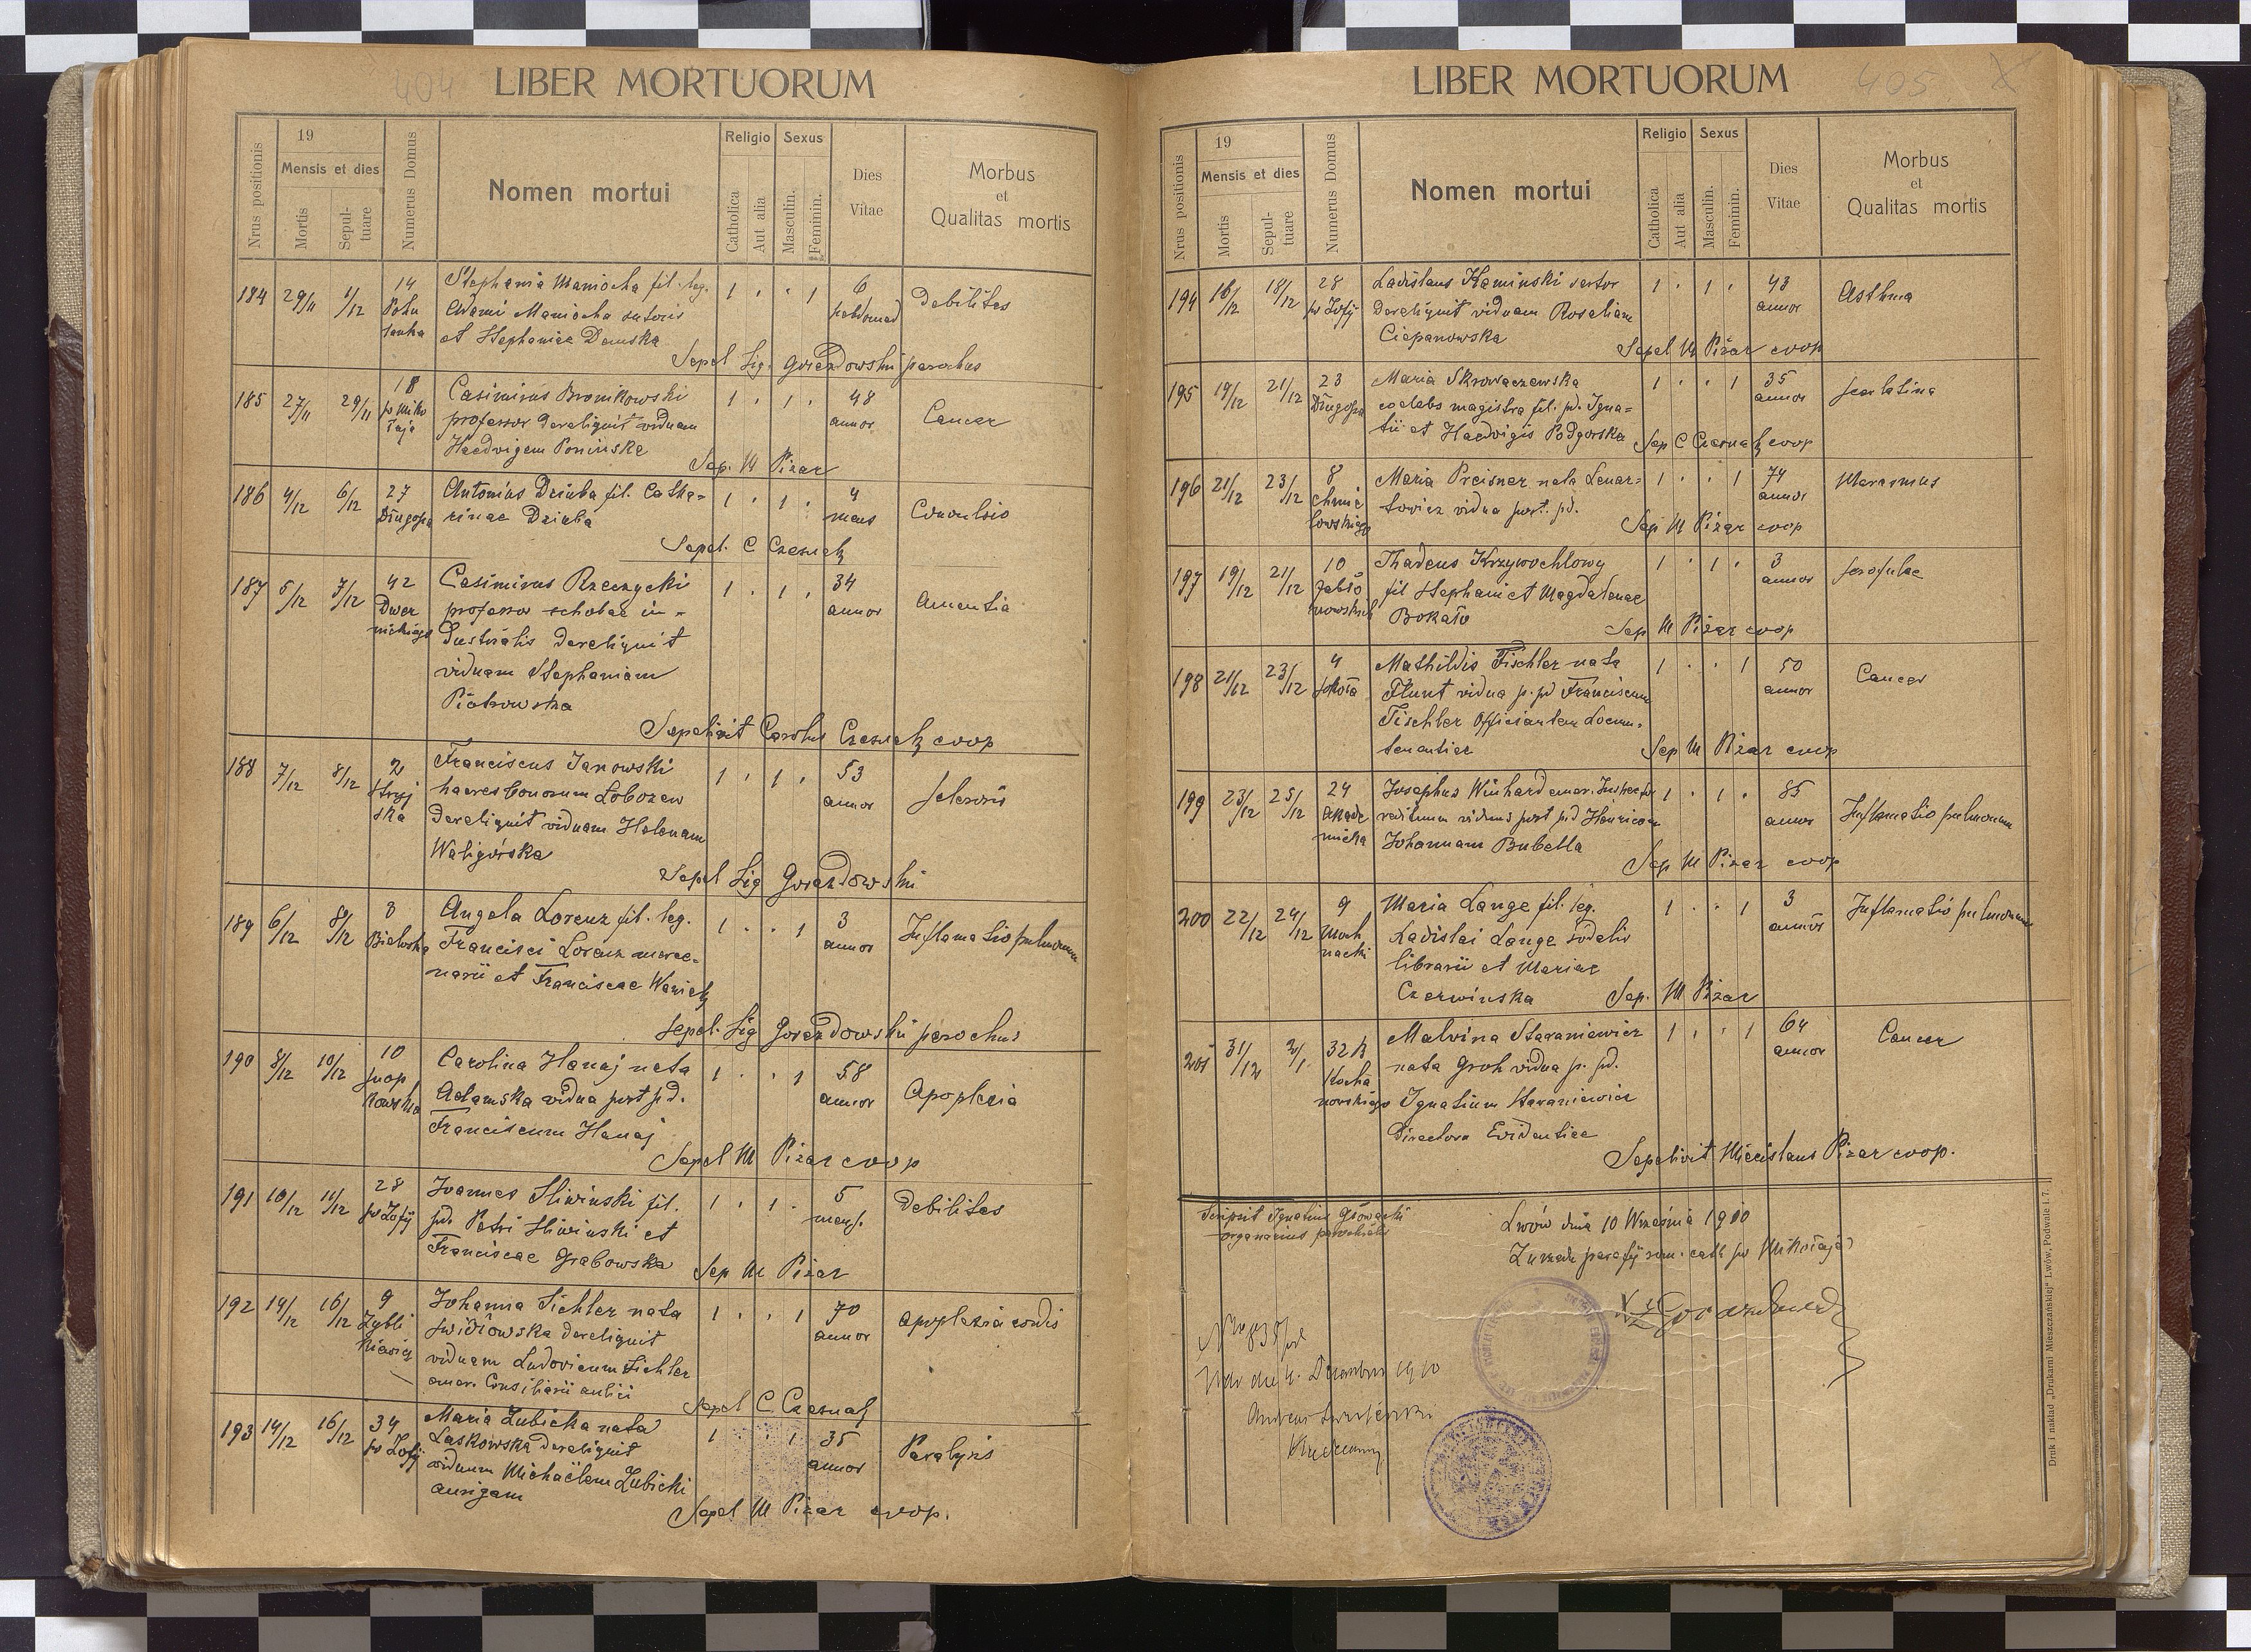 404 LIBER MORTUORUM
Nrus positionis
19
Mensis et dies
Mortis
Sepul-
tuare
Numerus Domus
Nomen mortui
Religio
Catholica
Aut alia
Sexus
Masculin.
Feminin.
Dies
Vitae
Morbus
et
Qualitas mortis
184 29/11 1/12 14 Stephania Maniocha fil. leg. 1 . . 1 6 Debilitas
Adami Maniocha sutoris hebdomad
et Stephaniae Demska
Sepel Sig. Gorazdowski parochus
185 27/11 29/11 18 Casimirus Bronikowski 1 . 1 . 48 Cancer
św Miko professor dereliquit viduam annor
łaja Hedvigem Poninska
Sep. M Pizar
186 4/12 6/12 27 Antonius Dziuba fil. Catha= 1 . 1 . 4 Convulsio
Długosza rinae Dziuba mens
Sepel. C Czesnak
187 5/12 7/12 42 Casimirus Rzeczycki 1 . 1 . 34 Amentia
Dwer professor scholae in- annor
nickiego dustrialis dereliquit
viduam Stephaniam
Piotrowska
Sepelivit Carolus Czesnak coop
188 7/12 8/12 2 Franciscus Janowski 1 . 1 . 53 Sclerosis
Stryj haeres bonorum Lobozew annor
ska dereliquit viduam Helenam
Waligórska
Sepel Sig Gorazdowski
189 6/12 8/12 3 Angela Lorenz fil. leg. 1 . . 1 3 Inflamatio pulmonum
Bielowska Francisci Lorenz merce- annor
narii et Franciscae
Sepel. Sig Gorazdowski parochus
190 8/12 10/12 10 Carolina Hanaj nata 1 . . 1 58 Apoplexia
Snop Adamska vidua post pd. annor
kowska Franciscum Hanaj
Sepel M Pizar coop
191 10/12 11/12 28 Joannes Sliwinski fil. 1 . 1 . 5 Debilitas
św Zofij pd. Petri Sliwinski et mens.
Franciscae Grabowska
Sep M Pizar
192 14/12 16/12 9 Johanna Sichler nata 1 . . 1 70 Apoplexia cordis
Zybli Świdłowska dereliquit annor
kiewicz viduum Ludovicum Sichler
emer. Consiliarii aulici
Sepel C Czesnak
193 14/12 16/12 34 Maria Zubicka nata 1 . . 1 35 Paralysis
św Zofij Laskowska dereliquit annor
viduum Michaëlem Zubicki
aurigam
Sepel M Pizar coop.
LIBER MORTUORUM 405 X
Nrus positionis
19
Mensis et dies
Mortis
Sepul-
tuare
Numerus Domus
Nomen mortui
Religio
Catholica
Aut alia
Sexus
Masculin.
Feminin.
Dies
Vitae
Morbus
et
Qualitas mortis
194 16/12 18/12 28 Ladislaus Kaminski sartor 1 . 1 . 43 Asthma
św Zofij Dereliquit viduam Rosaliam annor
Ciepanowska
Sepel M Pizar coop
195 19/12 21/12 23 Maria Skrowaczewska 1 . . 1 35 Scarlatina
Długosza coelebs magistra fil. pd. Igna= annor
tii et Hedvigis Podgorska
Sep C Czesnak coop
196 21/12 23/12 8 Maria Preisner nata Lenar= 1 . . 1 74 Marasmus
Chmie towicz vidua post. pd. annor
lowskiego Sep M Pizar coop
197 19/12 21/12 10 Thadeus Krzywochlowy 1 . 1 . 3 Scrofulae
Jabło fil Stephani et Magdalenae annor
nowskich Bokało
Sep M Pizar coop
198 21/12 23/12 4 Mathildis Fischler nata 1 . . 1 50 Cancer
Sokoła Flunt vidua p. pd Franciscum annor
Fischler Officiantem Locum=
tenentiae
Sep M Pizar coop
199 23/12 25/12 24 Josephus Winhard emer. 1 . 1 . 85 Inflamatio pulmonum
Akade redituum viduus post pd Henricam annor
micka Johannam Bubella
Sep M Pizar coop
200 22/12 24/12 9 Maria Lange fil. leg. 1 . . 1 3 Inflamatio pulmonum
Moch Ladislai Lange sodalis annor
nacki librarii et Mariae
Czerwinska
Sep. M Pizar
201 31/12 2/1 32 b Malvina Staraniewicz 1 . . 1 64 Cancer
Kocha nata Groh vidua p. pd. annor
nowskiego Ignatium Staraniewicz
Directora Evidentiae
Sepelivit Miecislaus Pizar coop.
Scripsit Ignatius Głowacki
organarius parochialis
Lwów dnia 10 Września 1910
parafij rzm. cath św Mikołaja
4. Decembris 1910
Druk i nakład „Drukarni Mieszczańskiej" Lwów, Podwale l. 7.